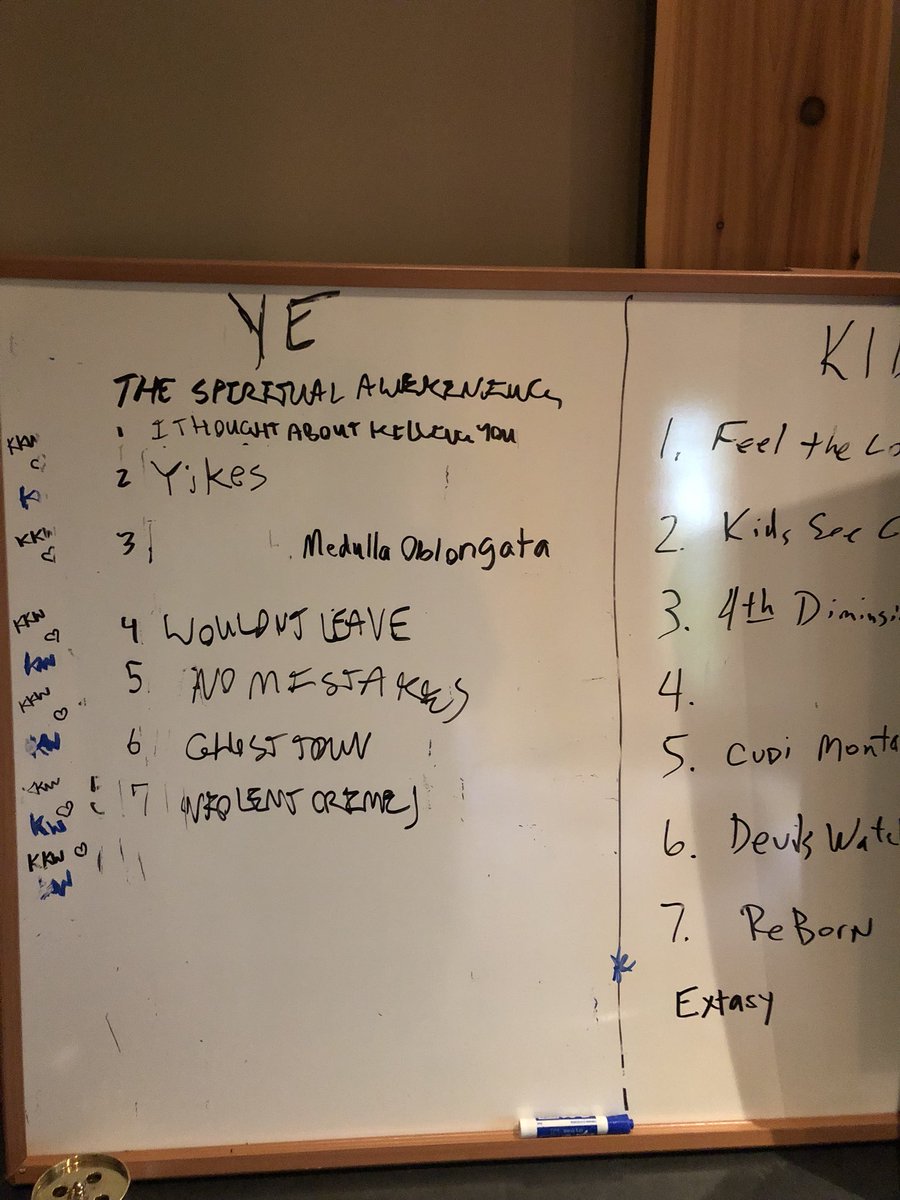 YE
THE SPIRITUAL AWEKENING
1 I THOUGHT ABOUT KILLING YOU
2 Yikes
3 Medulla Oblongata
4 WOULDNT LEAVE
5 NO MISTAKES
6 GHOST TOWN
7 VIOLENT CRIMES
KKW
KKW
KKW
KW
KKW
KKW
KW
KKW
KW
KI
1. Feel the Lo
2. Kids See G
3. 4th Diminsi
4.
5. CUDI Monta
6. Devils Watc
7. ReBorn
Extasy